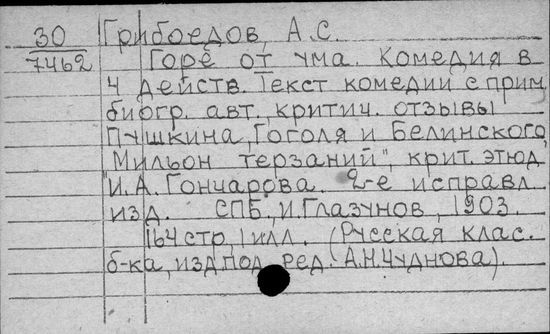 30 Грибоедов, А.С.
7462 Горе от ума. Комедия в
4 действ. Текст комедии с прим.
биогр. авт., критич. отзывы
Пушкина, Гоголя и Белинского,
"Мильон терзаний", крит. этюд
И.А. Гончарова. 2-е исправл.
изд. СПБ., И. Глазунов, 1903.
164 стр., 1 илл. (Русская клас.
б-ка, изд. под ред. А.Н. Чуднова).